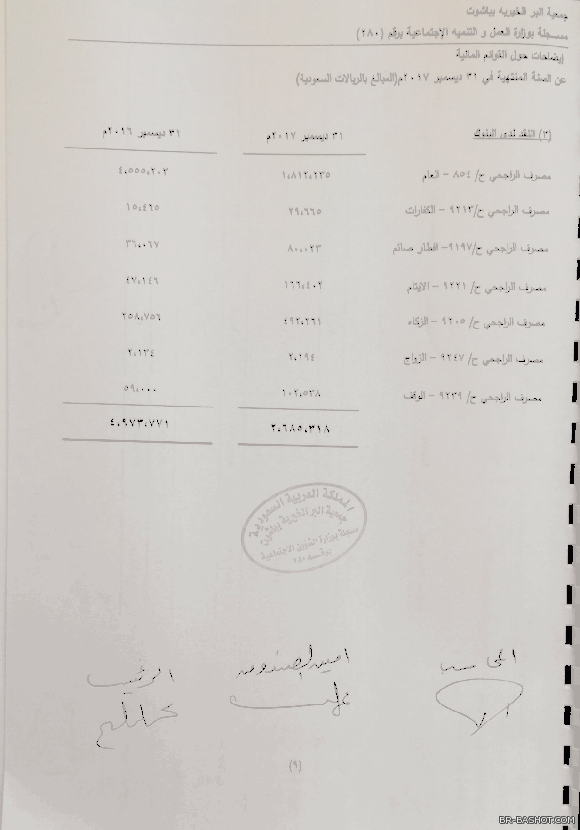 جمعية البر الخيريه بباشوت
مسجلة بوزارة العمل و التنميه الإجتماعية برقم (٢٨٠)
إيضاحات حول القوائم المالية
عن السنة المنتهية في ٣١ ديسمبر ٢٠١٧م(المبالغ بالريالات السعودية)
(٣) النقد لدى البنوك ٣١ ديسمبر ٢٠١٧م ٣١ ديسمبر ٢٠١٦م
مصرف الراجحي ح/ ٨٥٤ – العام ١،٨١٢،٢٣٥ ٤،٥٥٥،٢٠٣
مصرف الراجحي ح/٩٢١٣ – الكفارات ٢٩،٦٦٥ ١٥،٤٦٥
مصرف الراجحي ح/٩١٩٧– افطار صائم ٨٠،٠٢٣ ٣٦،٠٦٧
مصرف الراجحي ح/ ٩٢٢١ – الايتام ١٦٦،٤٠٢ ٤٧،١٤٦
مصرف الراجحي ح/ ٩٢٠٥ – الزكاه ٤٩٢،٢٦١ ٢٥٨،٧٥٦
مصرف الراجحي ح/ ٩٢٤٧ – الزواج ٢،١٩٤ ٢،١٣٤
مصرف الراجحي ح/ ٩٢٣٩ – الوقف ١٠٢،٥٣٨ ٥٩،٠٠٠
٢،٦٨٥،٣١٨ ٤،٩٧٣،٧٧١
المملكة العربية السعودية
جمعية البر الخيرية بباشوت
مسجلة بوزارة الشؤون الاجتماعية
برقم ٢٨٠
المحاسب امين الصندوق الرئيس
(٩)
BR-BASHOT.COM